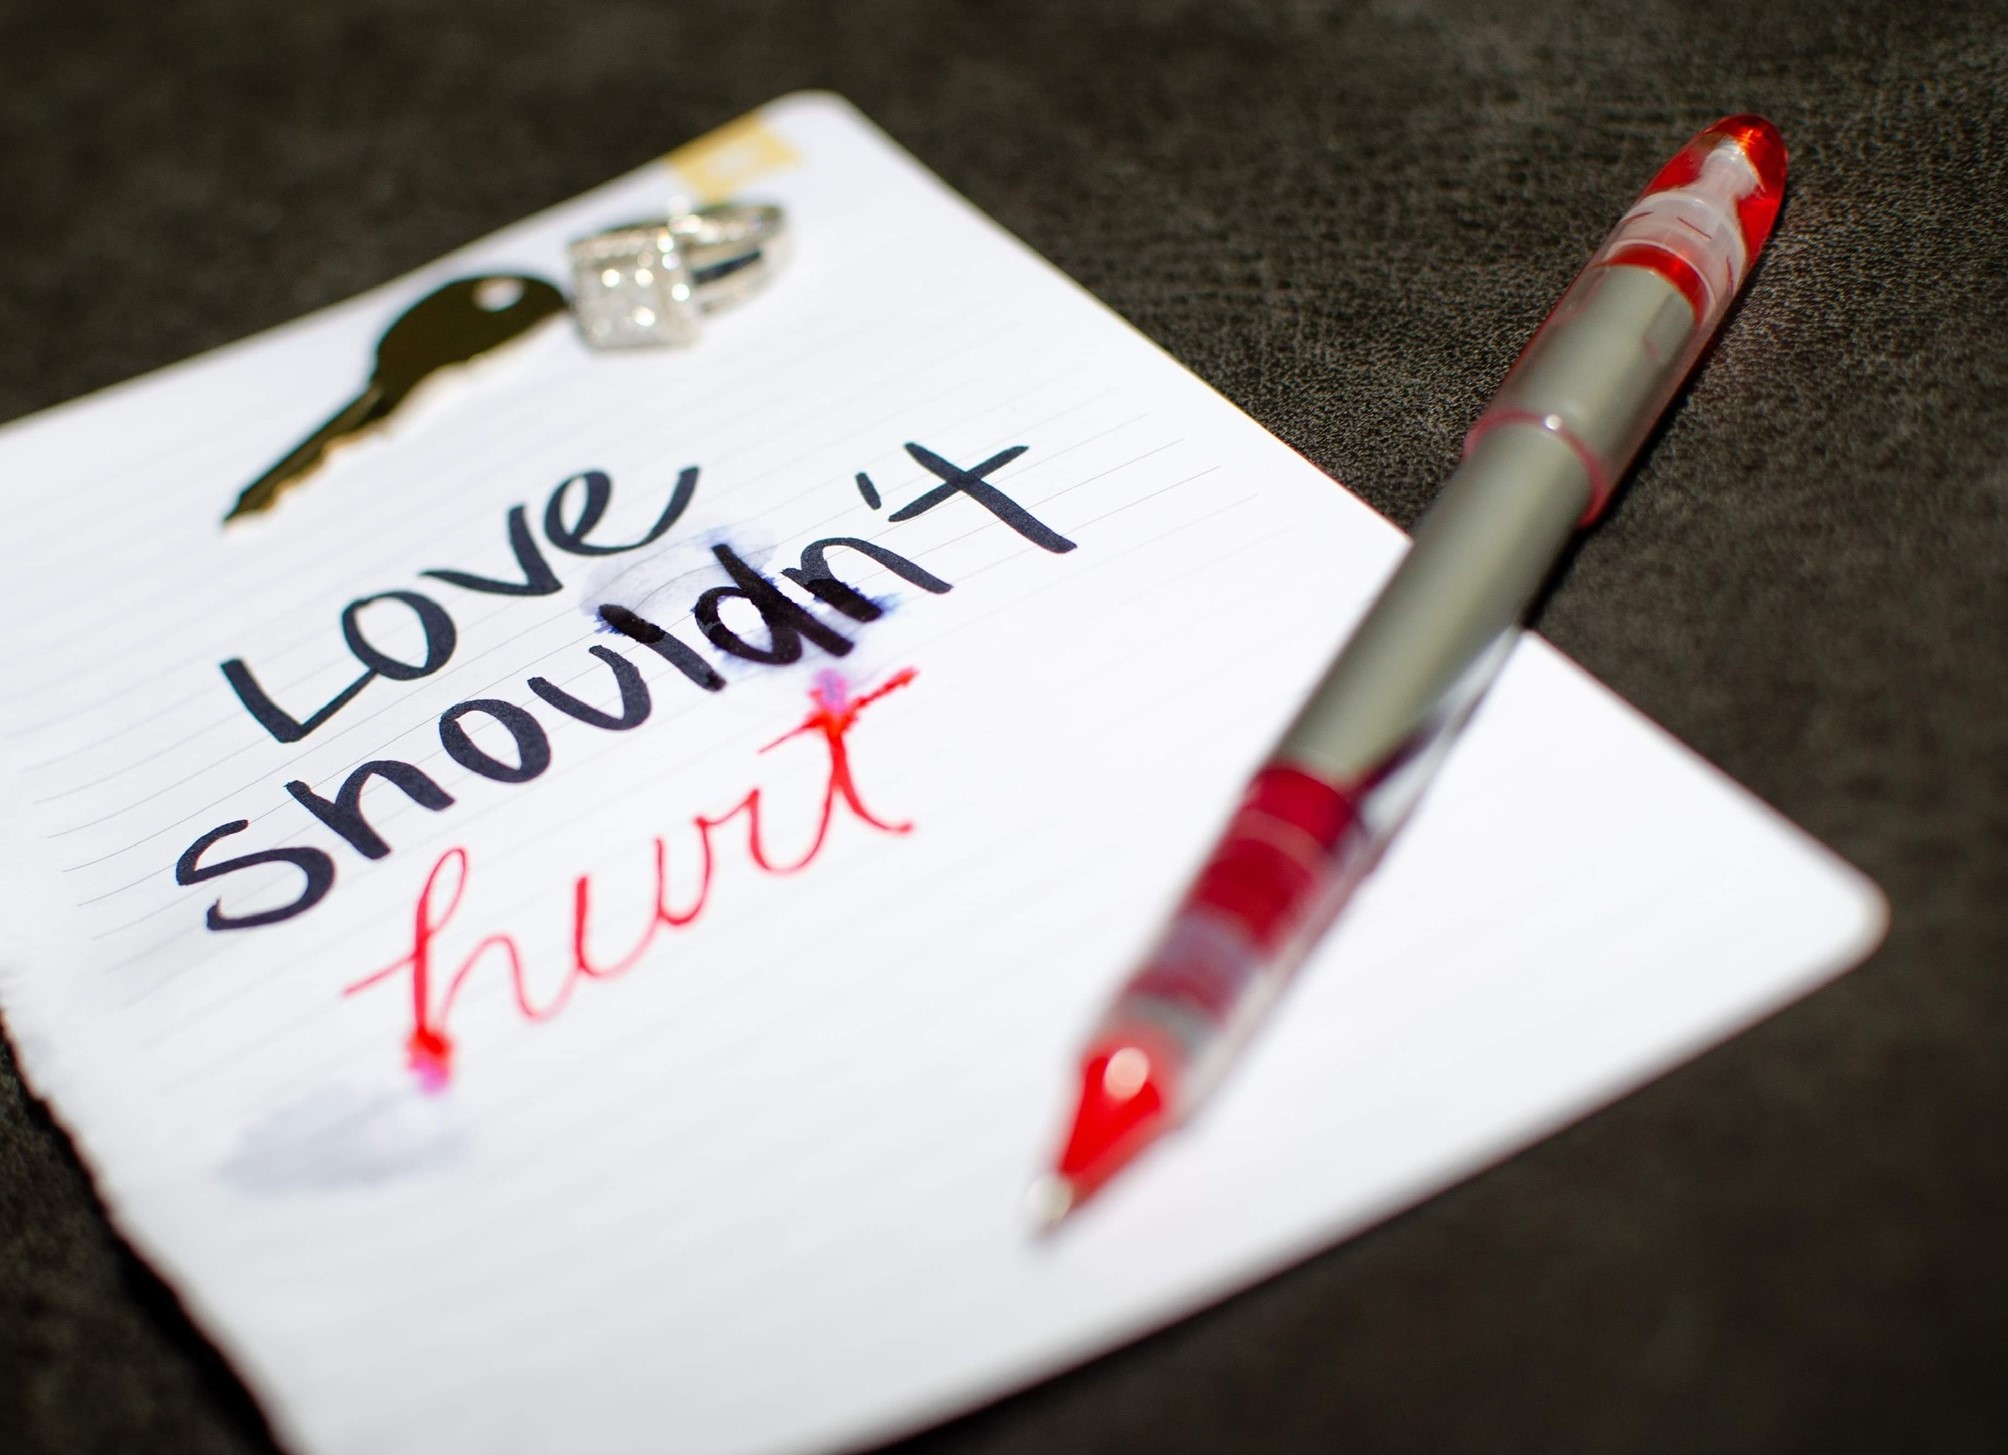 Love
shouldn't
hurt